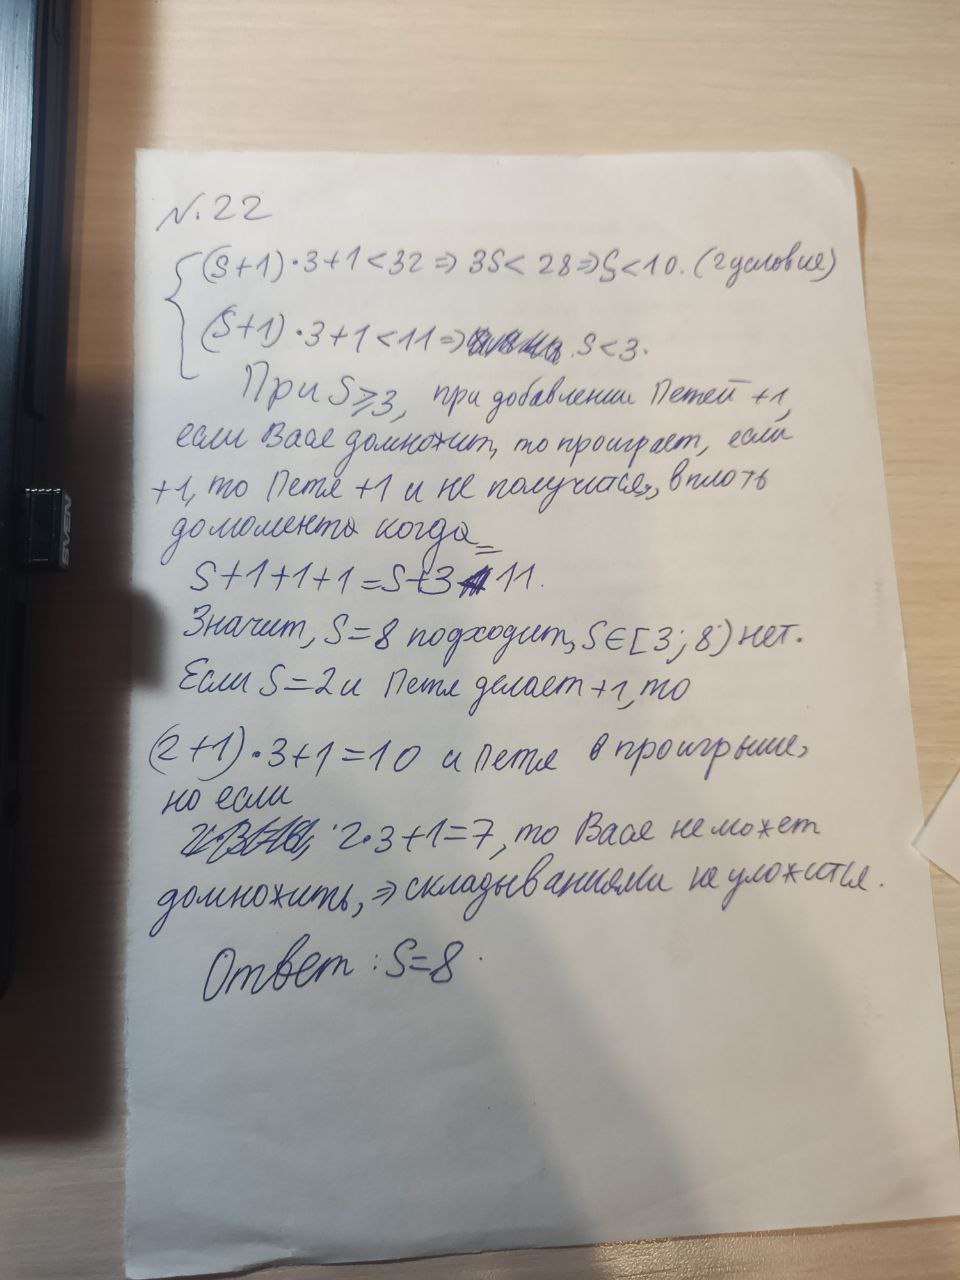 N.22
(S+1)·3+1<32 ⇒ 3S<28 ⇒ S<10. (2 условие)
(S+1)·3+1<11 ⇒ S<3.
При S⩾3, при добавлении Петей +1,
если Вася домножит, то проиграет, если
+1, то Петя +1 и не получится, вплоть
до момента когда
S+1+1+1=S+3 = 11.
Значит, S=8 подходит, S∈[3; 8) нет.
Если S=2 и Петя делает +1, то
(2+1)·3+1=10 и Петя в проигрыше,
но если
2·3+1=7, то Вася не может
домножить, ⇒ складываниями не уложится.
Ответ: S=8.
SVEN